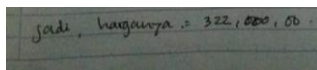 Jadi, harganya = 322,000,00.